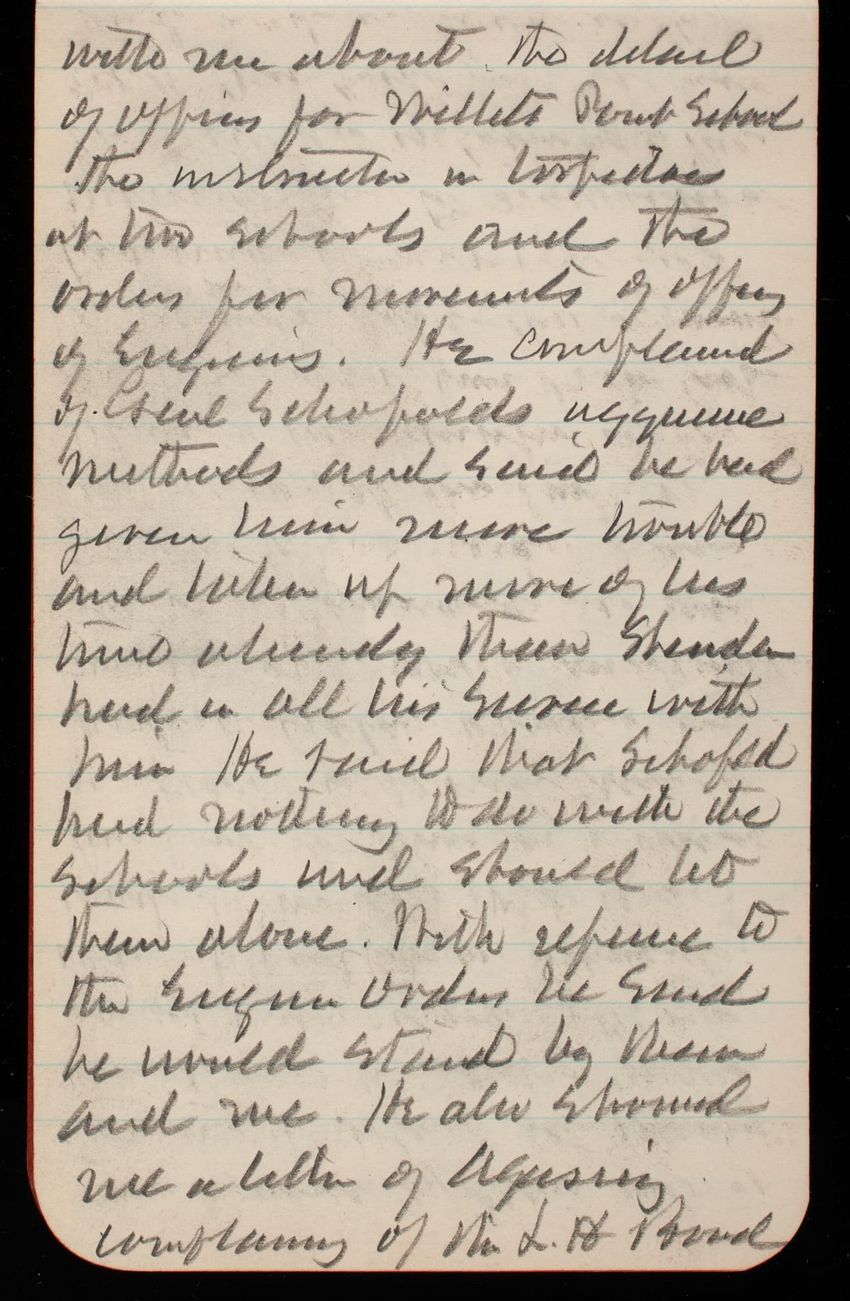 with me about the detail
of officers for Willets Point School
the instructor in torpedoes
at two schools and the
orders for movements of officers
of Engineers. He complained
of Genl Schofields aggressive
methods and said he had
given him more trouble
and taken up more of his
time already than Sheridan
had in all his service with
him He said that Schofield
had nothing to do with the
schools and should let
them alone. With reference to
the Engineer orders he said
he would stand by them
and me. He also showed
me a letter of Agassiz
complaining of the L. H Board